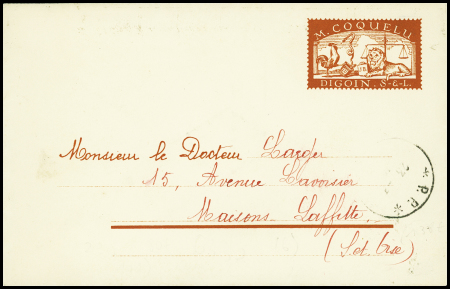 M. COQUELU
DIGOIN . S-&-L.
Monsieur le Docteur
15, Avenue Lavoisier
Maisons-Laffitte
(S. et Oise)
* P.P. *